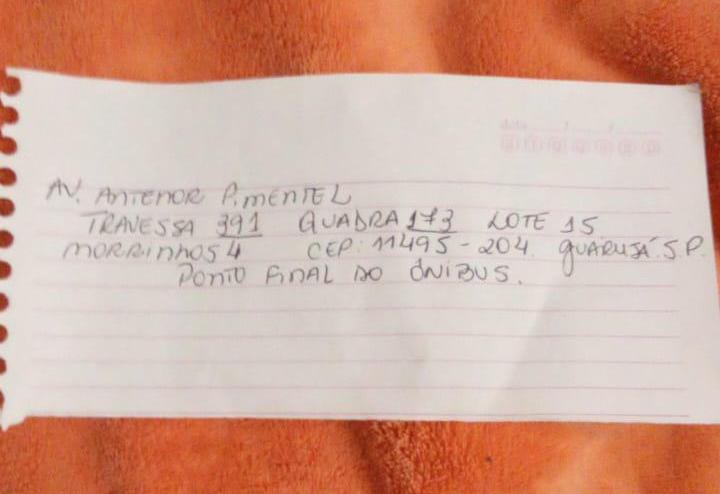 data / /
D S T Q Q S S
AV. ANTENOR PIMENTEL
TRAVESSA 391 QUADRA 173 LOTE 15
MORRINHOS 4 CEP: 11495-204. GUARUJÁ. S.P.
PONTO FINAL DO ÔNIBUS.